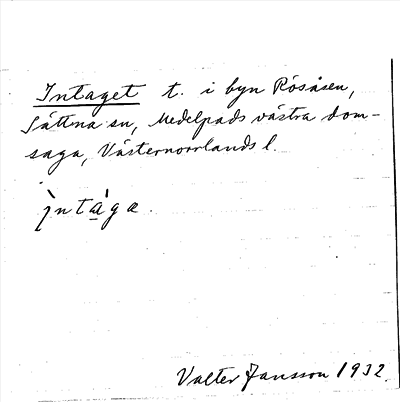 Intaget t. i byn Rösåsen,
Sättna sn, Medelpads västra dom-
saga, Västernorrlands l.
ı̀ntàgæ.
Valter Jansson 1932.